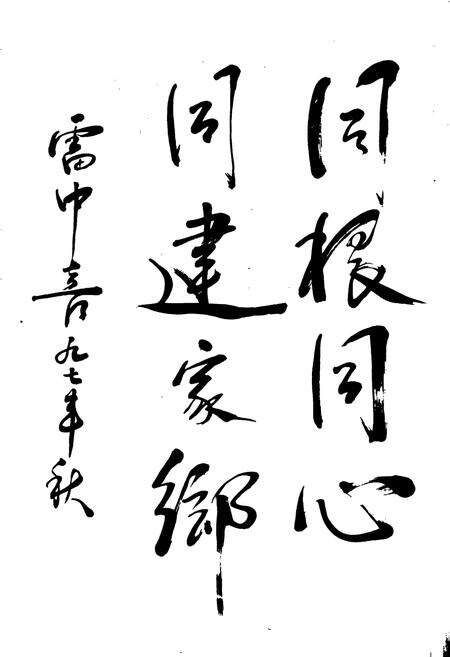 同根同心
同建家鄉
雷中喜九七年秋